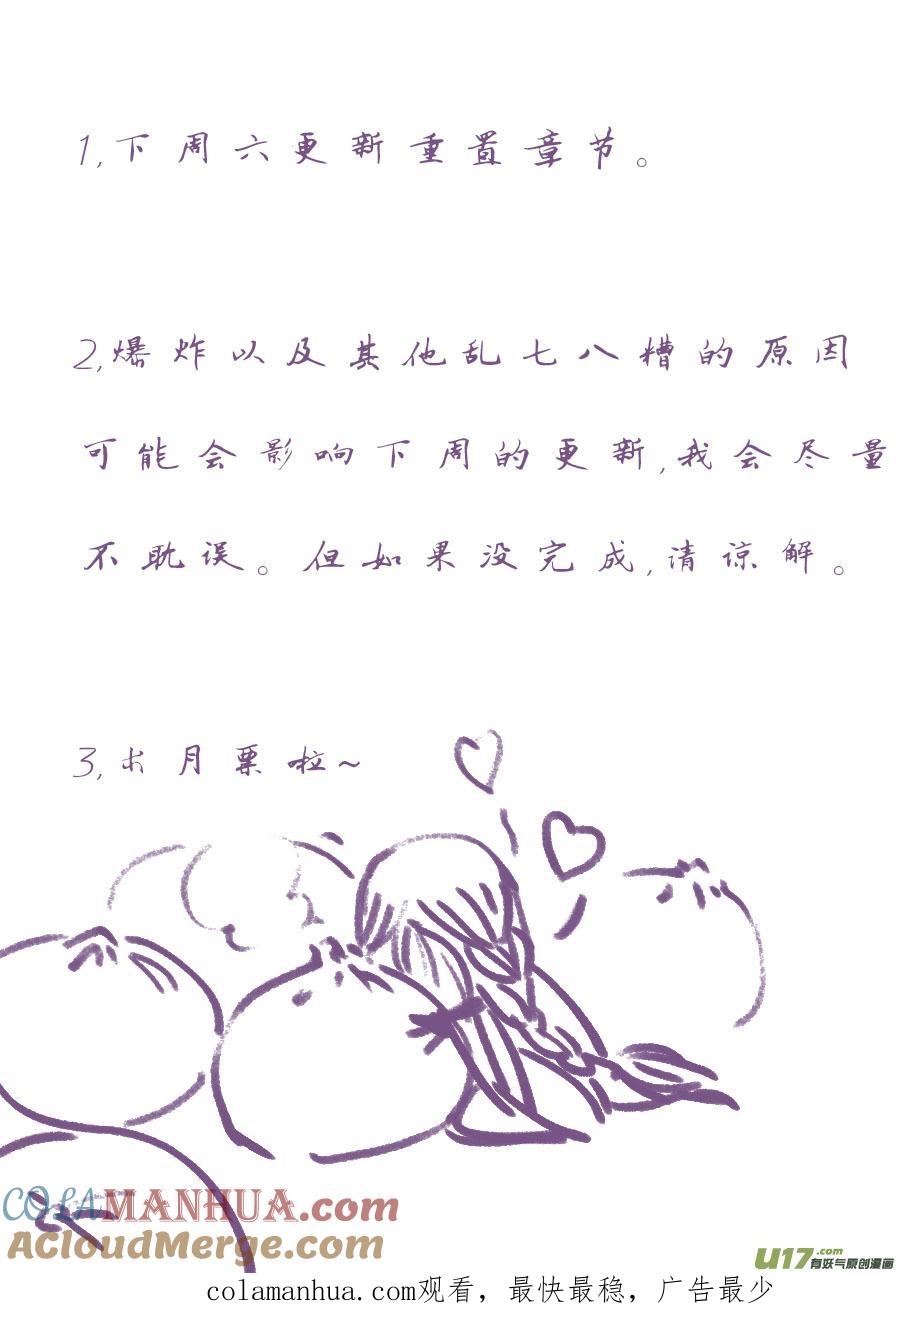 1,下周六更新重置章节。
2,爆炸以及其他乱七八糟的原因
可能会影响下周的更新,我会尽量
不耽误。但如果没完成,请谅解。
3,求月票啦~
COLAMANHUA.com
ACloudMerge.com
U17.com
有妖气原创漫画
colamanhua.com观看，最快最稳，广告最少